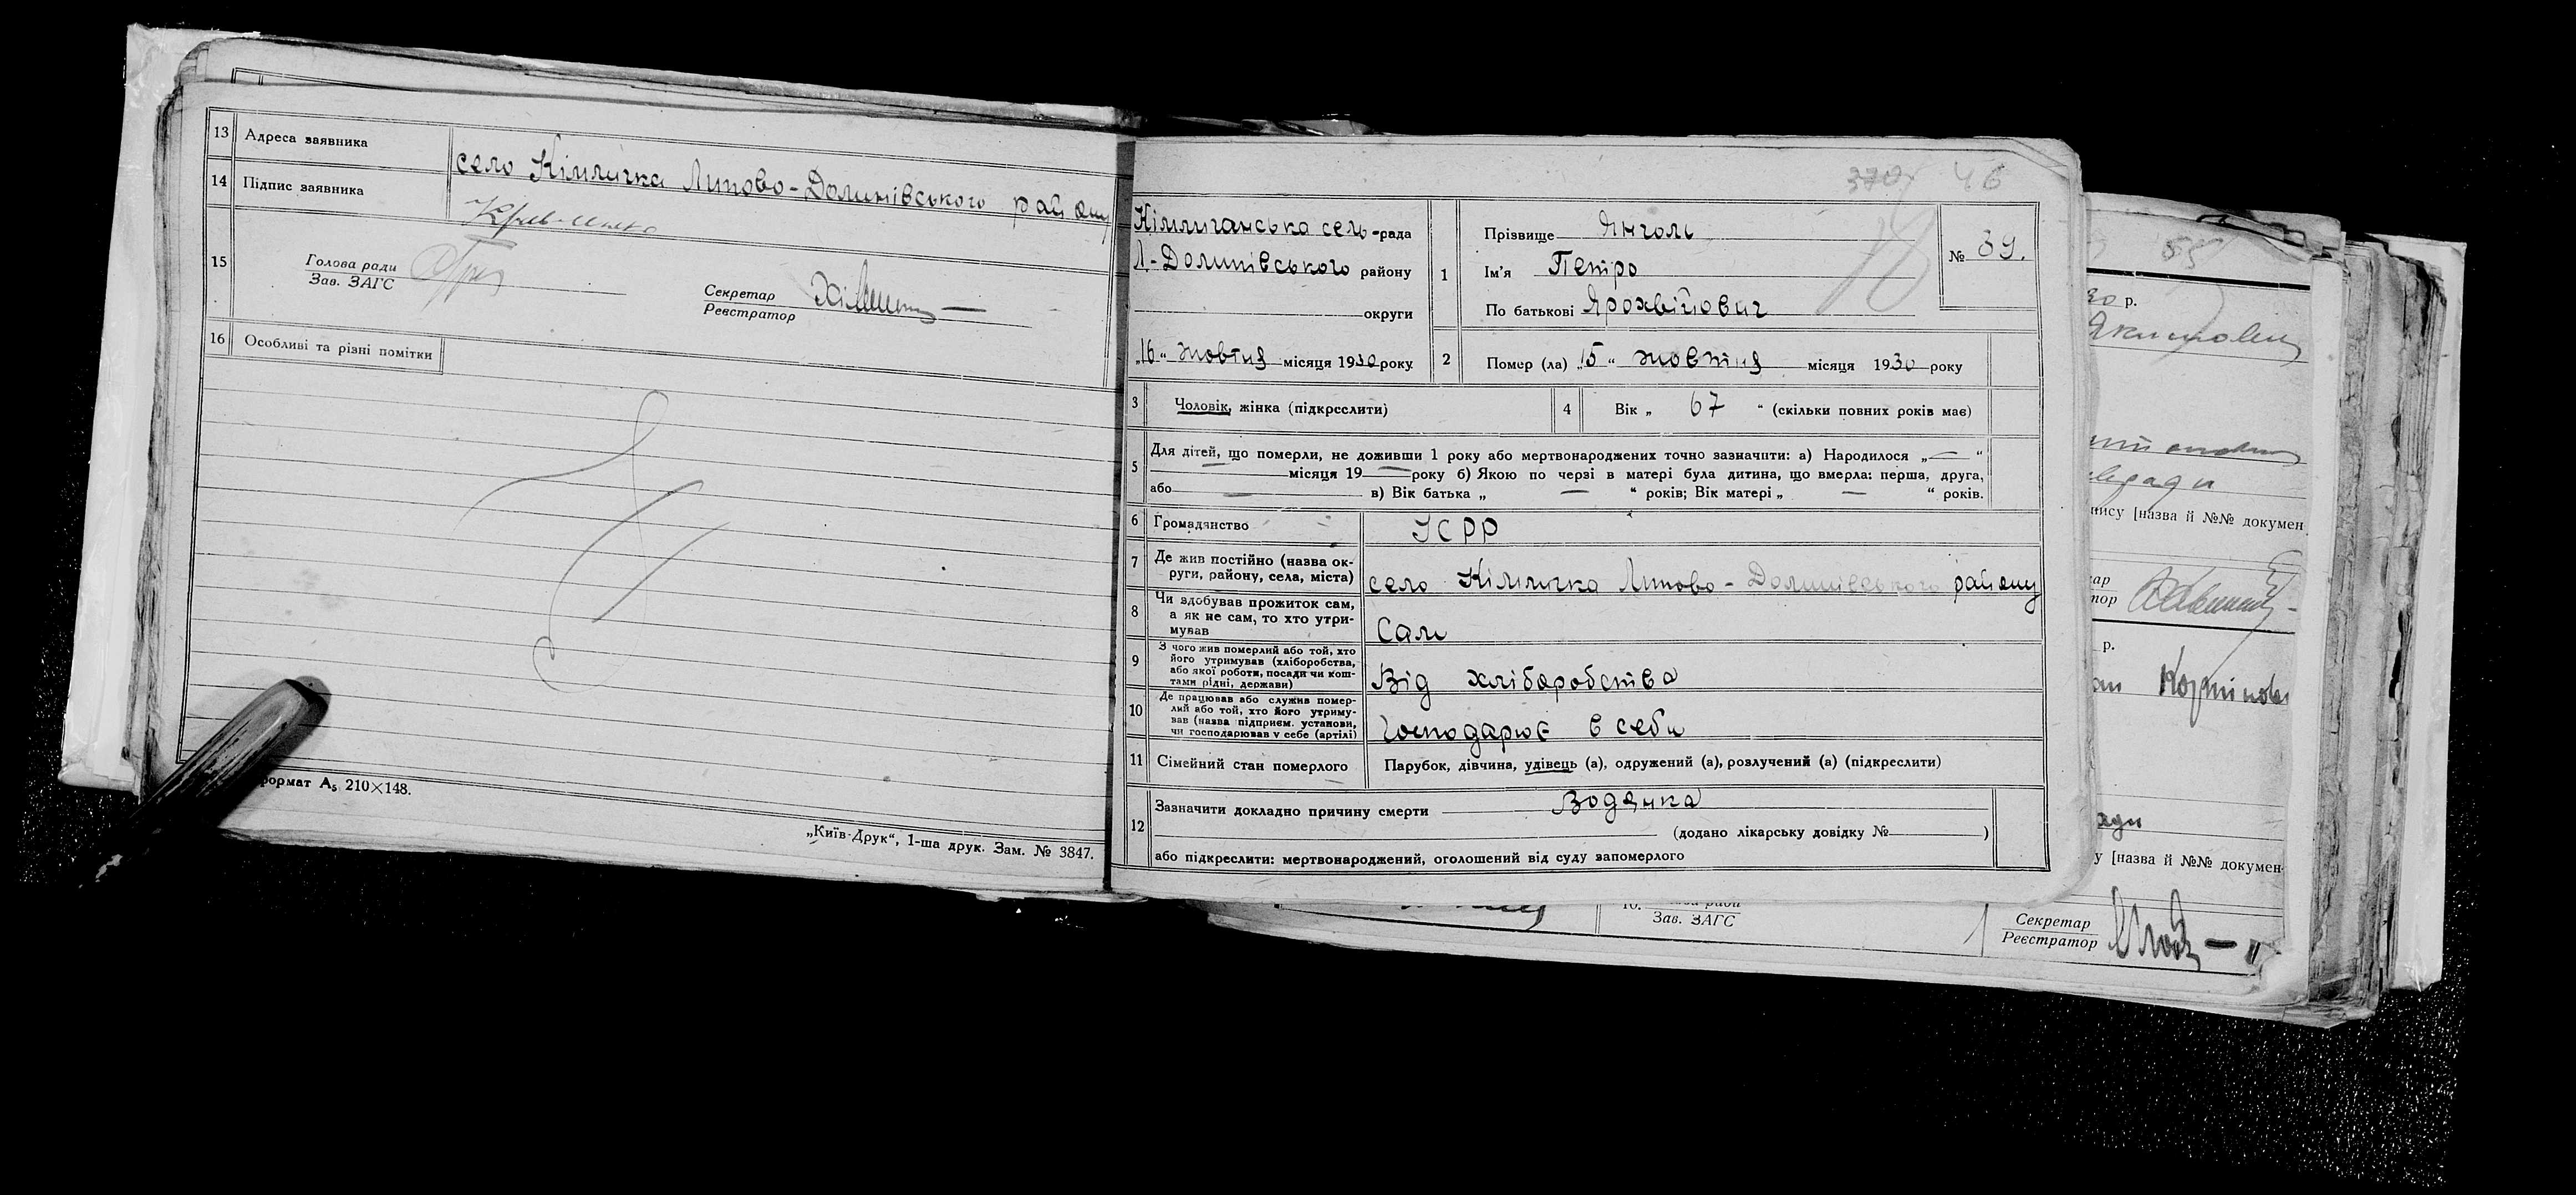 13 Адреса заявника
село Кімличка Липово-Долинівського району
14 Підпис заявника
15 Голова ради
Зав. ЗАГС
Секретар
Реєстратор
16 Особливі та різні помітки
формат А5 210×148.
„Київ-Друк“, 1-ша друк. Зам. № 3847.
370 46
Кімличанська сель-рада
Л-Долинівського району
округи
„16“ жовтня місяця 1930 року
1 Прізвище Янголь
Ім'я Петро
По батькові Ярохвійович
№ 39.
2 Помер (ла) „15“ жовтня місяця 1930 року
3 Чоловік, жінка (підкреслити)
4 Вік „ 67 “ (скільки повних років має)
5 Для дітей, що померли, не доживши 1 року або мертвонароджених точно зазначити: а) Народилося „—“
місяця 19—року б) Якою по черзі в матері була дитина, що вмерла: перша, друга,
або — в) Вік батька „ — “ років; Вік матері „ — “ років.
6 Громадянство УСРР
7 Де жив постійно (назва ок-
руги, району, села, міста) село Кімличка Липово-Долинівського району
8 Чи здобував прожиток сам,
а як не сам, то хто утри-
мував Сам
9 З чого жив померлий або той, хто
його утримував (хліборобства,
або якої роботи, посади чи кош-
тами рідні, держави) Від хліборобства
10 Де працював або служив помер-
лий або той, хто його утриму-
вав (назва підприєм. установи,
чи господарював у себе (артілі) Господарює в себи
11 Сімейний стан померлого Парубок, дівчина, удівець (а), одружений (а), розлучений (а) (підкреслити)
12 Зазначити докладно причину смерти Водянка
(додано лікарську довідку № )
або підкреслити: мертвонароджений, оголошений від суду запомерлого
55
30 р.
пису [назва й №№ докумен
р.
у [назва й №№ докумен-
Зав. ЗАГС
Секретар
Реєстратор